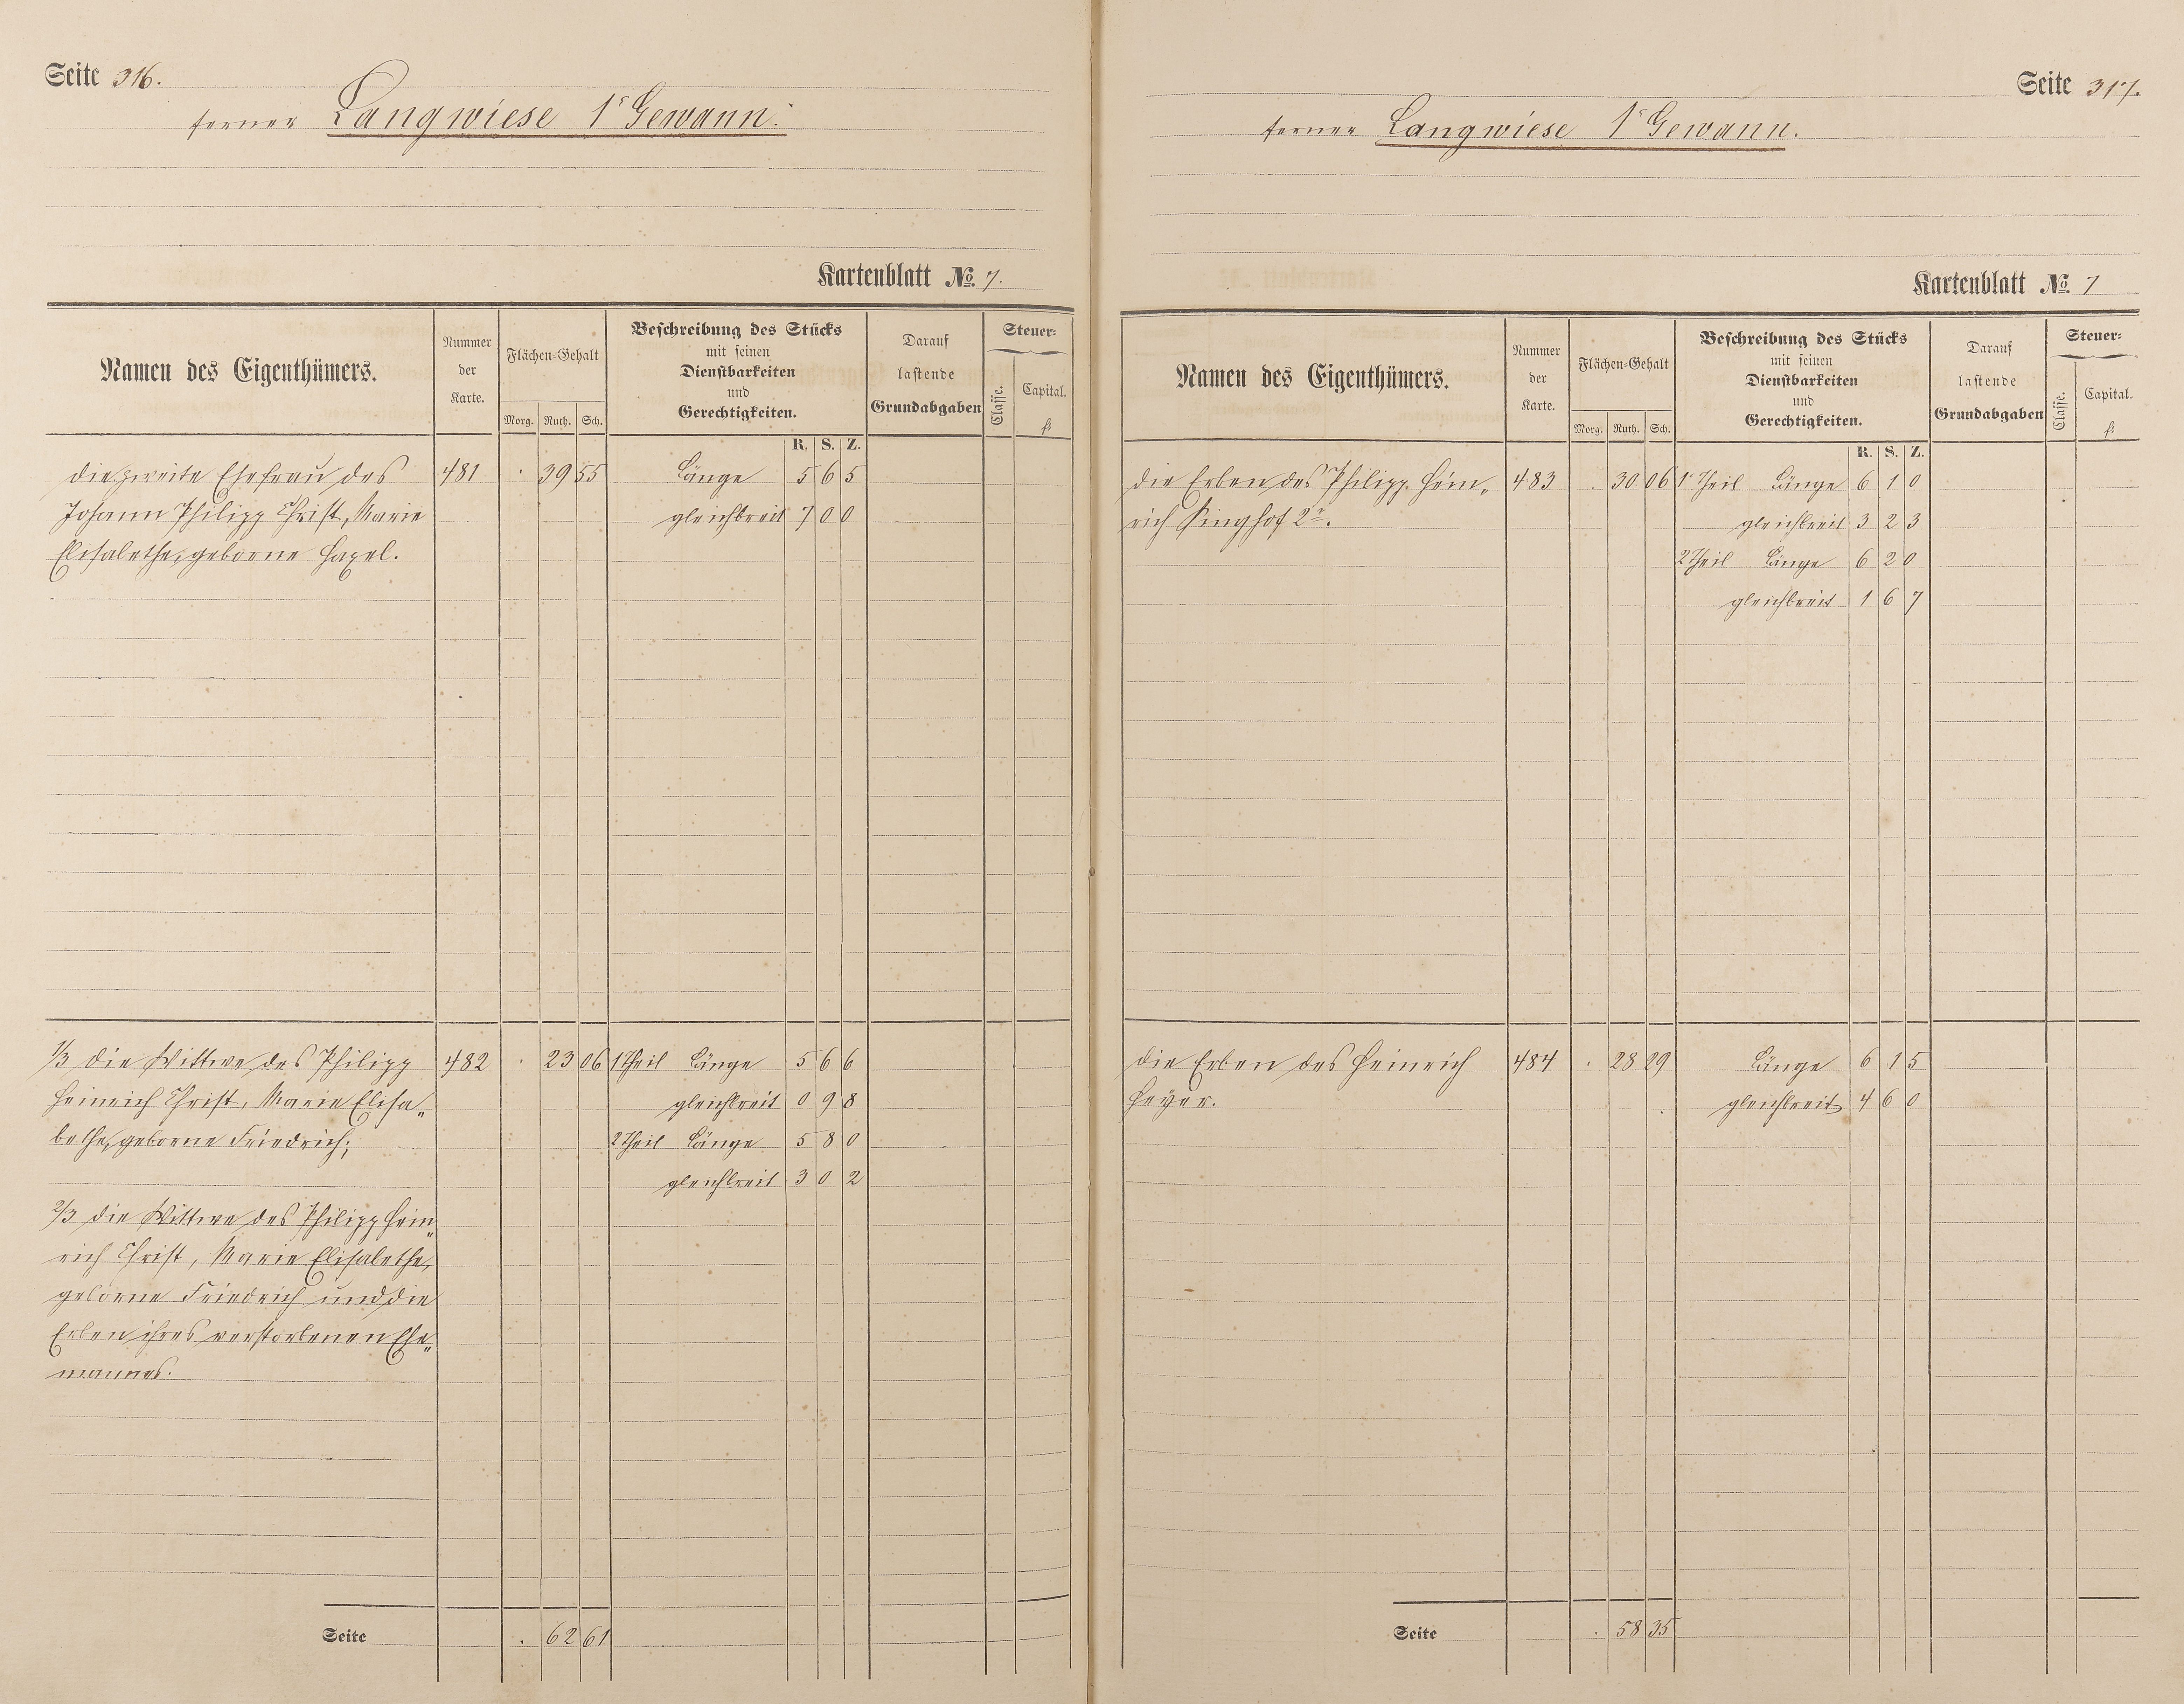 Seite 316.
ferner Langwiese 1r Gewann.
Kartenblatt No. 7.
Namen des Eigenthümers.
Nummer der Karte.
Flächen-Gehalt
Morg. Ruth. Sch.
Beschreibung des Stücks
mit seinen
Dienstbarkeiten
und
Gerechtigkeiten.
Darauf
lastende
Grundabgaben
Steuer-
Classe.
Capital.
fl
R. S. Z.
die zweite Ehefrau des 481 . 39 55 Länge 5 6 5
Johann Philipp Christ, Marie gleichbreit 7 0 0
Elisabethe, geborne Hagel.
1/3 die Wittwe des Philipp 482 . 23 06 1 Theil Länge 5 6 6
Heinrich Christ, Marie Elisa„ gleichbreit 0 9 8
bethe, geborne Friedrich; 2 Theil Länge 5 8 0
gleichbreit 3 0 2
2/3 die Wittwe des Philipp Hein„
rich Christ, Marie Elisabethe,
geborne Friedrich und die
Erben ihres verstorbenen Ehe„
mannes.
Seite . 62 61
Seite 317.
ferner Langwiese 1r Gewann.
Kartenblatt No. 7
Namen des Eigenthümers.
Nummer der Karte.
Flächen-Gehalt
Morg. Ruth. Sch.
Beschreibung des Stücks
mit seinen
Dienstbarkeiten
und
Gerechtigkeiten.
Darauf
lastende
Grundabgaben
Steuer-
Classe.
Capital.
fl
R. S. Z.
die Erben des Philipp Hein„ 483 . 30 06 1r Theil Länge 6 1 0
rich Singhof 2r. gleichbreit 3 2 3
2 Theil Länge 6 2 0
gleichbreit 1 6 7
die Erben des Heinrich 484 . 28 29 Länge 6 1 5
Heyer. gleichbreit 4 6 0
Seite . 58 35